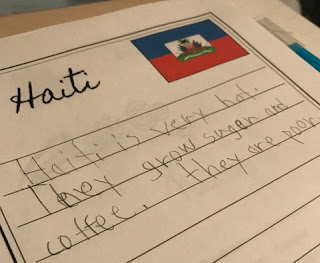 Haiti
Haiti is very hot.
They grow sugar and
coffee. They are poor.